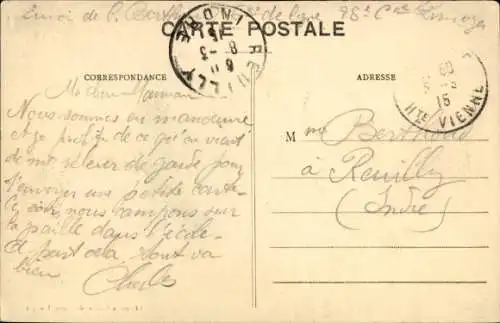 Envoi de C. Berth de ligne 28e Cie Limoges
CARTE POSTALE
REUILLY INDRE
6 11
8 -3
15
CORRESPONDANCE
ADRESSE
15
Hte VIENNE
Ma chère Maman
Nous sommes en manoeuvre
et je profite de ce qu'on vient
de me relever de garde pour
t'envoyer une petite carte
Ce soir nous campons sur
la paille dans l'école
A part cela tout va
bien
Charles
Mme Berthe
à Reuilly
(Indre)